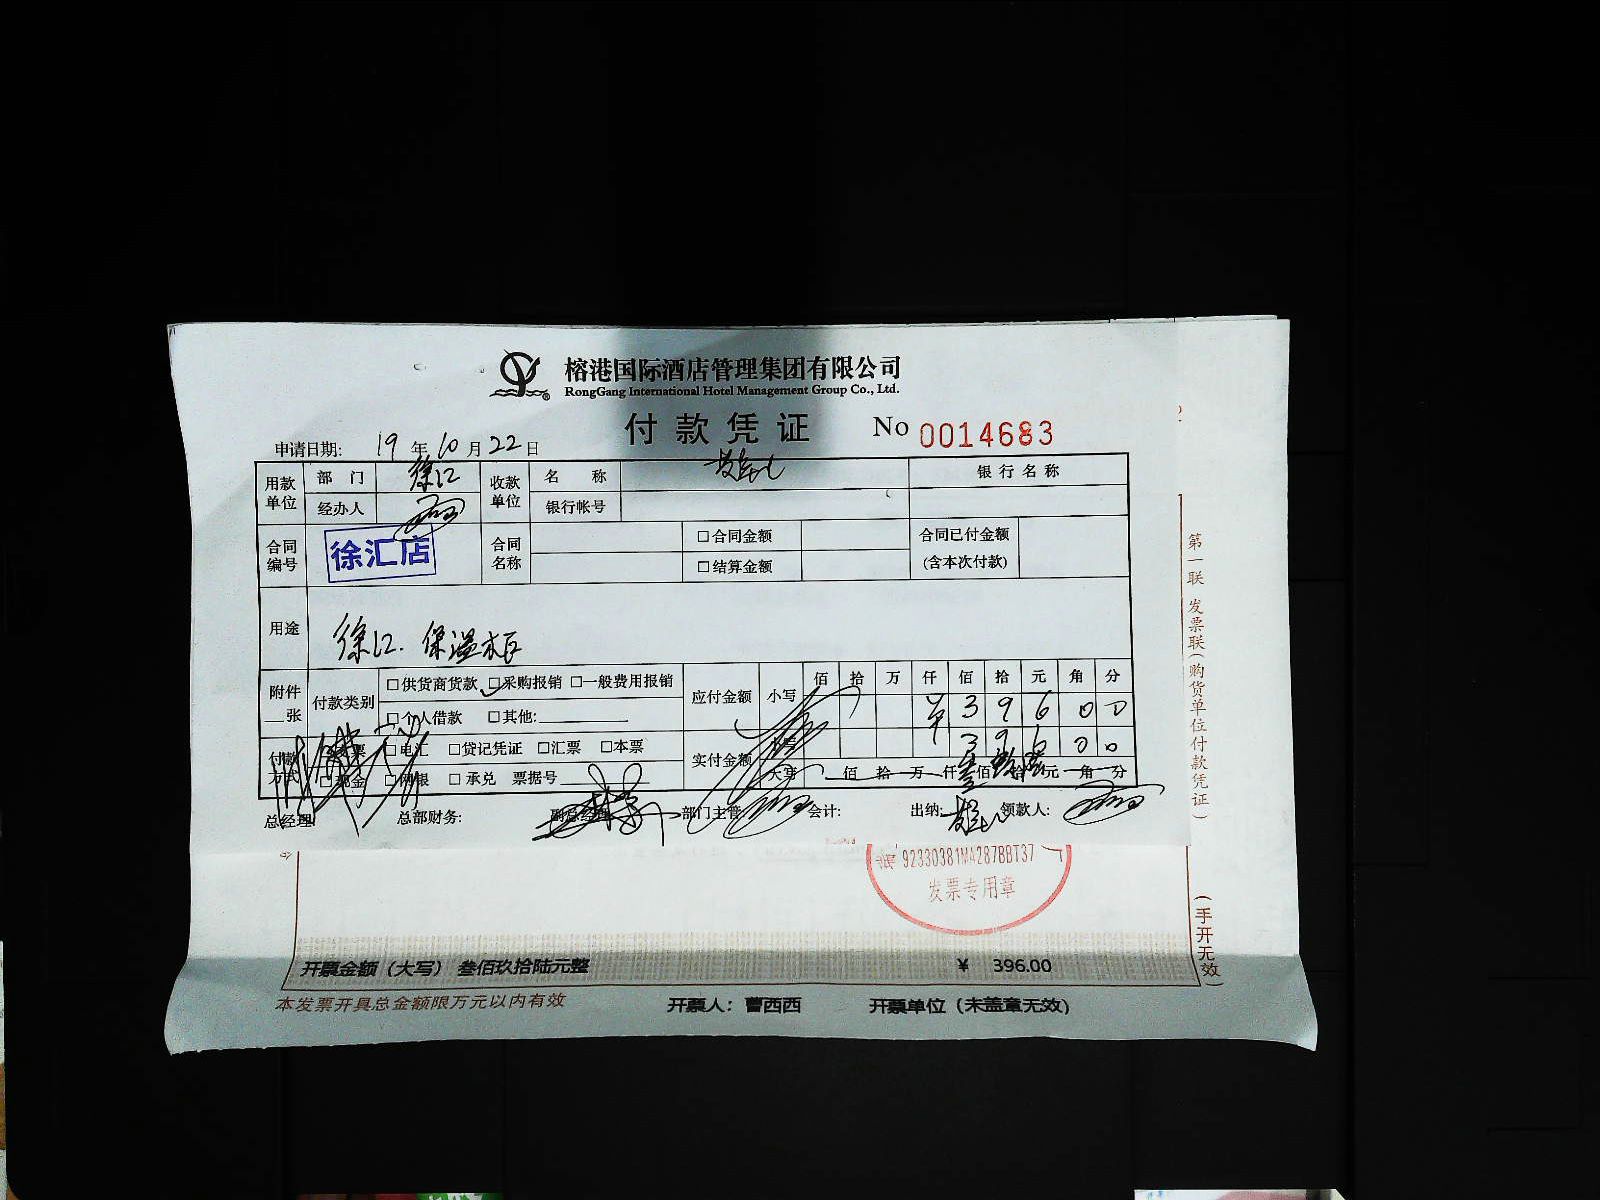 榕港国际酒店管理集团有限公司
RongGang International Hotel Management Group Co., Ltd.
付款凭证 No 0014683
申请日期: 19 年 10 月 22 日
用款单位 部门 徐汇 收款单位 名称 银行名称
经办人 银行帐号
合同编号 徐汇店 合同名称 □合同金额 合同已付金额(含本次付款)
□结算金额
用途 徐汇. 保温柜
附件__张 付款类别 □供货商货款 □采购报销 □一般费用报销 应付金额 小写 佰 拾 万 仟 佰 拾 元 角 分
□个人借款 □其他: ¥ 3 9 6 0 0
付款方式 □电汇 □贷记凭证 □汇票 □本票 实付金额 3 9 6 0 0
□现金 □网银 □承兑 票据号 大写 佰 拾 万 仟 叁 佰 玖 拾 陆 元 角 分
总经理 总部财务: 副总经理 部门主管 会计: 出纳: 领款人:
92330381MA287BBT37
发票专用章
开票金额（大写） 叁佰玖拾陆元整 ¥ 396.00
本发票开具总金额限万元以内有效 开票人：曹西西 开票单位（未盖章无效）
第一联 发票联(购货单位付款凭证)
(手开无效)